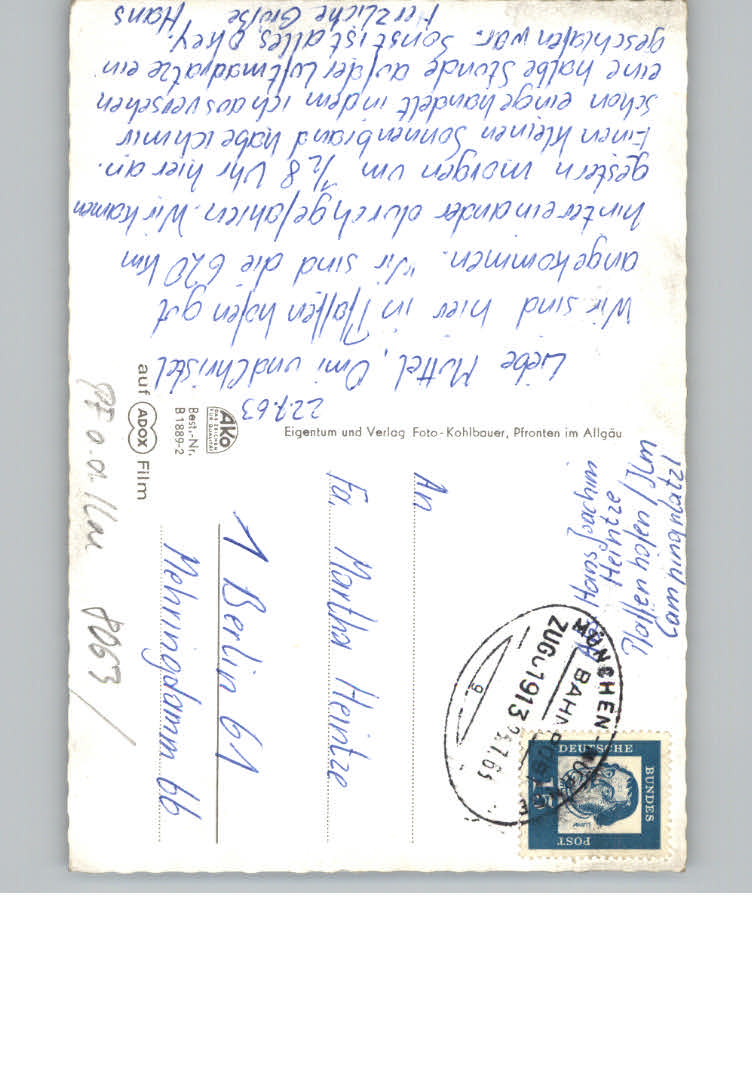 22.7.63
Liebe Muttel, Omi und Christel
Wir sind hier in Pfaffenhofen gut
angekommen. Wir sind die 620 km
hintereinander durchgefahren. Wir kamen
gestern morgen um 1/2 8 Uhr hier an.
Einen kleinen Sonnenbrand habe ich mir
schon eingehandelt indem ich aus versehen
eine halbe Stunde auf der Luftmadratze ein
geschlafen war. Sonst ist alles okey.
Herzliche Grüße Hans
Eigentum und Verlag Foto-Kohlbauer, Pfronten im Allgäu
Ako
DAS ZEICHEN
FÜR QUALITÄT
Best.-Nr.
B 1889-2
auf ADOX Film
Hans Joachim
Heintze
Pfaffenhofen / Ilm
Campingplatz
An
Fa. Martha Heintze
1 Berlin 61
Mehringdamm 66
MÜNCHEN
BAHNPOST
ZUG 01913
g
DEUTSCHE
BUNDES
POST
15
Luther
8063